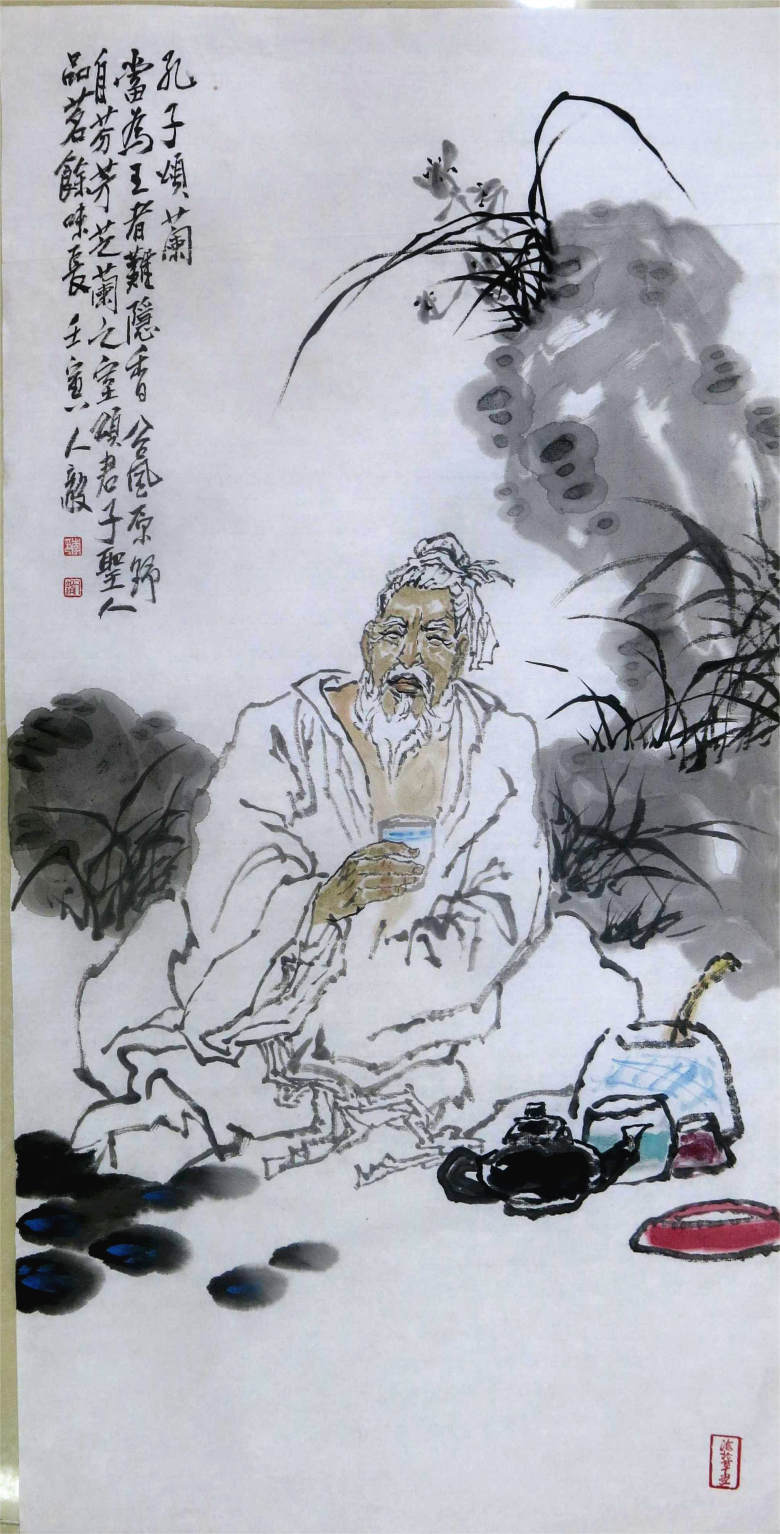 孔子頌蘭
當為王者難隱香谷風原野
自芬芳芝蘭之室頌君子聖人
品茗餘味長壬寅人毅